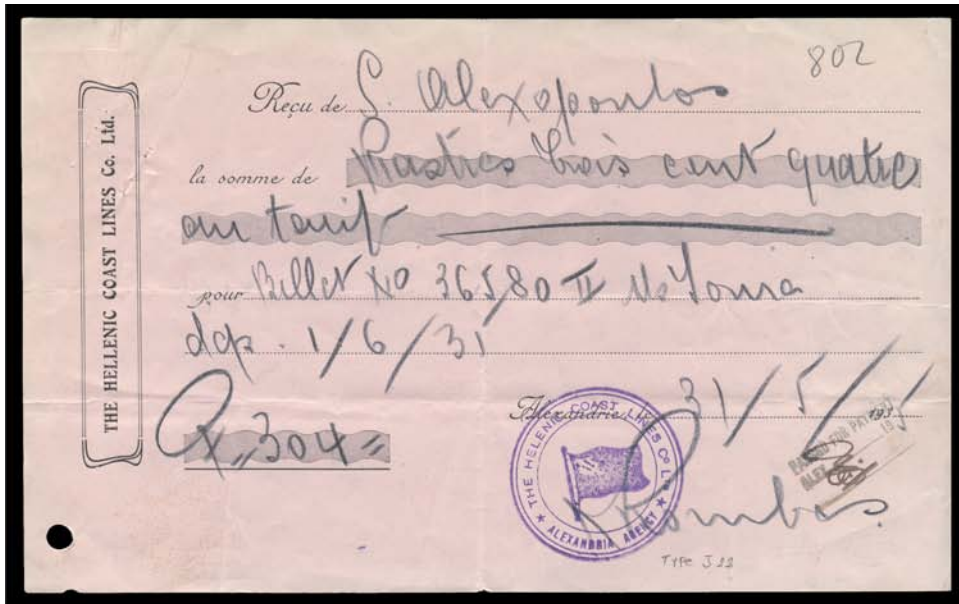 802
THE HELLENIC COAST LINES Co. Ltd.
Reçu de S. Alexopoulos
la somme de Piastres trois cent quatre
au tarif
pour Billet No 36580 II
dep. 1/6/31
Alexandrie, le 31/5/ 193
P "304"
THE HELENIC COAST LINES Co L
★ ALEXANDRIA AGENCY ★
PASSED FOR PAYMENT
ALEX
193
TYPE J 22